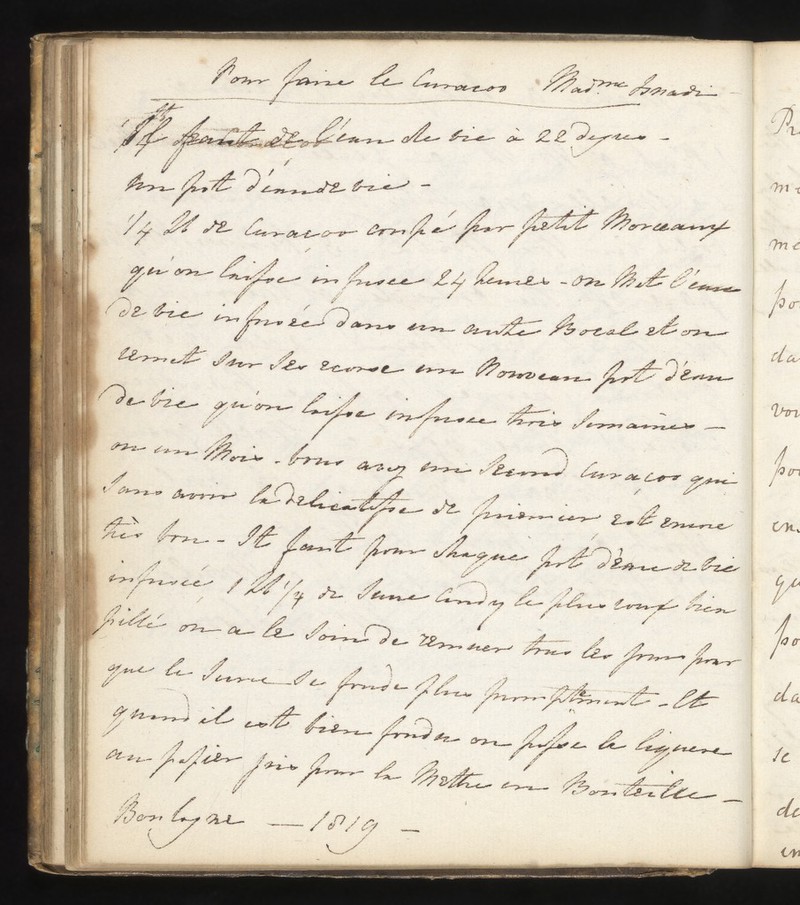 Pour faire le Curacoo Mad.me Isnadi
Il faut de l'eau de vie à 22 degres -
un pot d'eau de vie -
1/4 lb de Curacoo coupé par petit Morceaux
qu'on laisse infusee 24 heures - on Met l'eau
de vie infusée dans un autre Bocal et on
remet sur ses ecorse un Nouveau pot d'eau
de vie qu'on laisse infusee trois Semaines -
ou un Mois - vous avez un second Curacoo qui
sans avoir la delicatesse de premier est encore
très bon - Il faut pour chaque pot d'eau de vie
infusée, 1 lb 1/4 de Sucre Candy le plus roux bien
pillé on a le soin de remuer tous les jours pour
que le Sucre se fonde plus promptement - Et
quand il est bien fondu on passe la liqueure
au papier gris pour la Mettre en Bouteille -
Boulogne - 1819 -
Pr
me
me
po
da
vou
po
en
qu
po
da
se
de
en